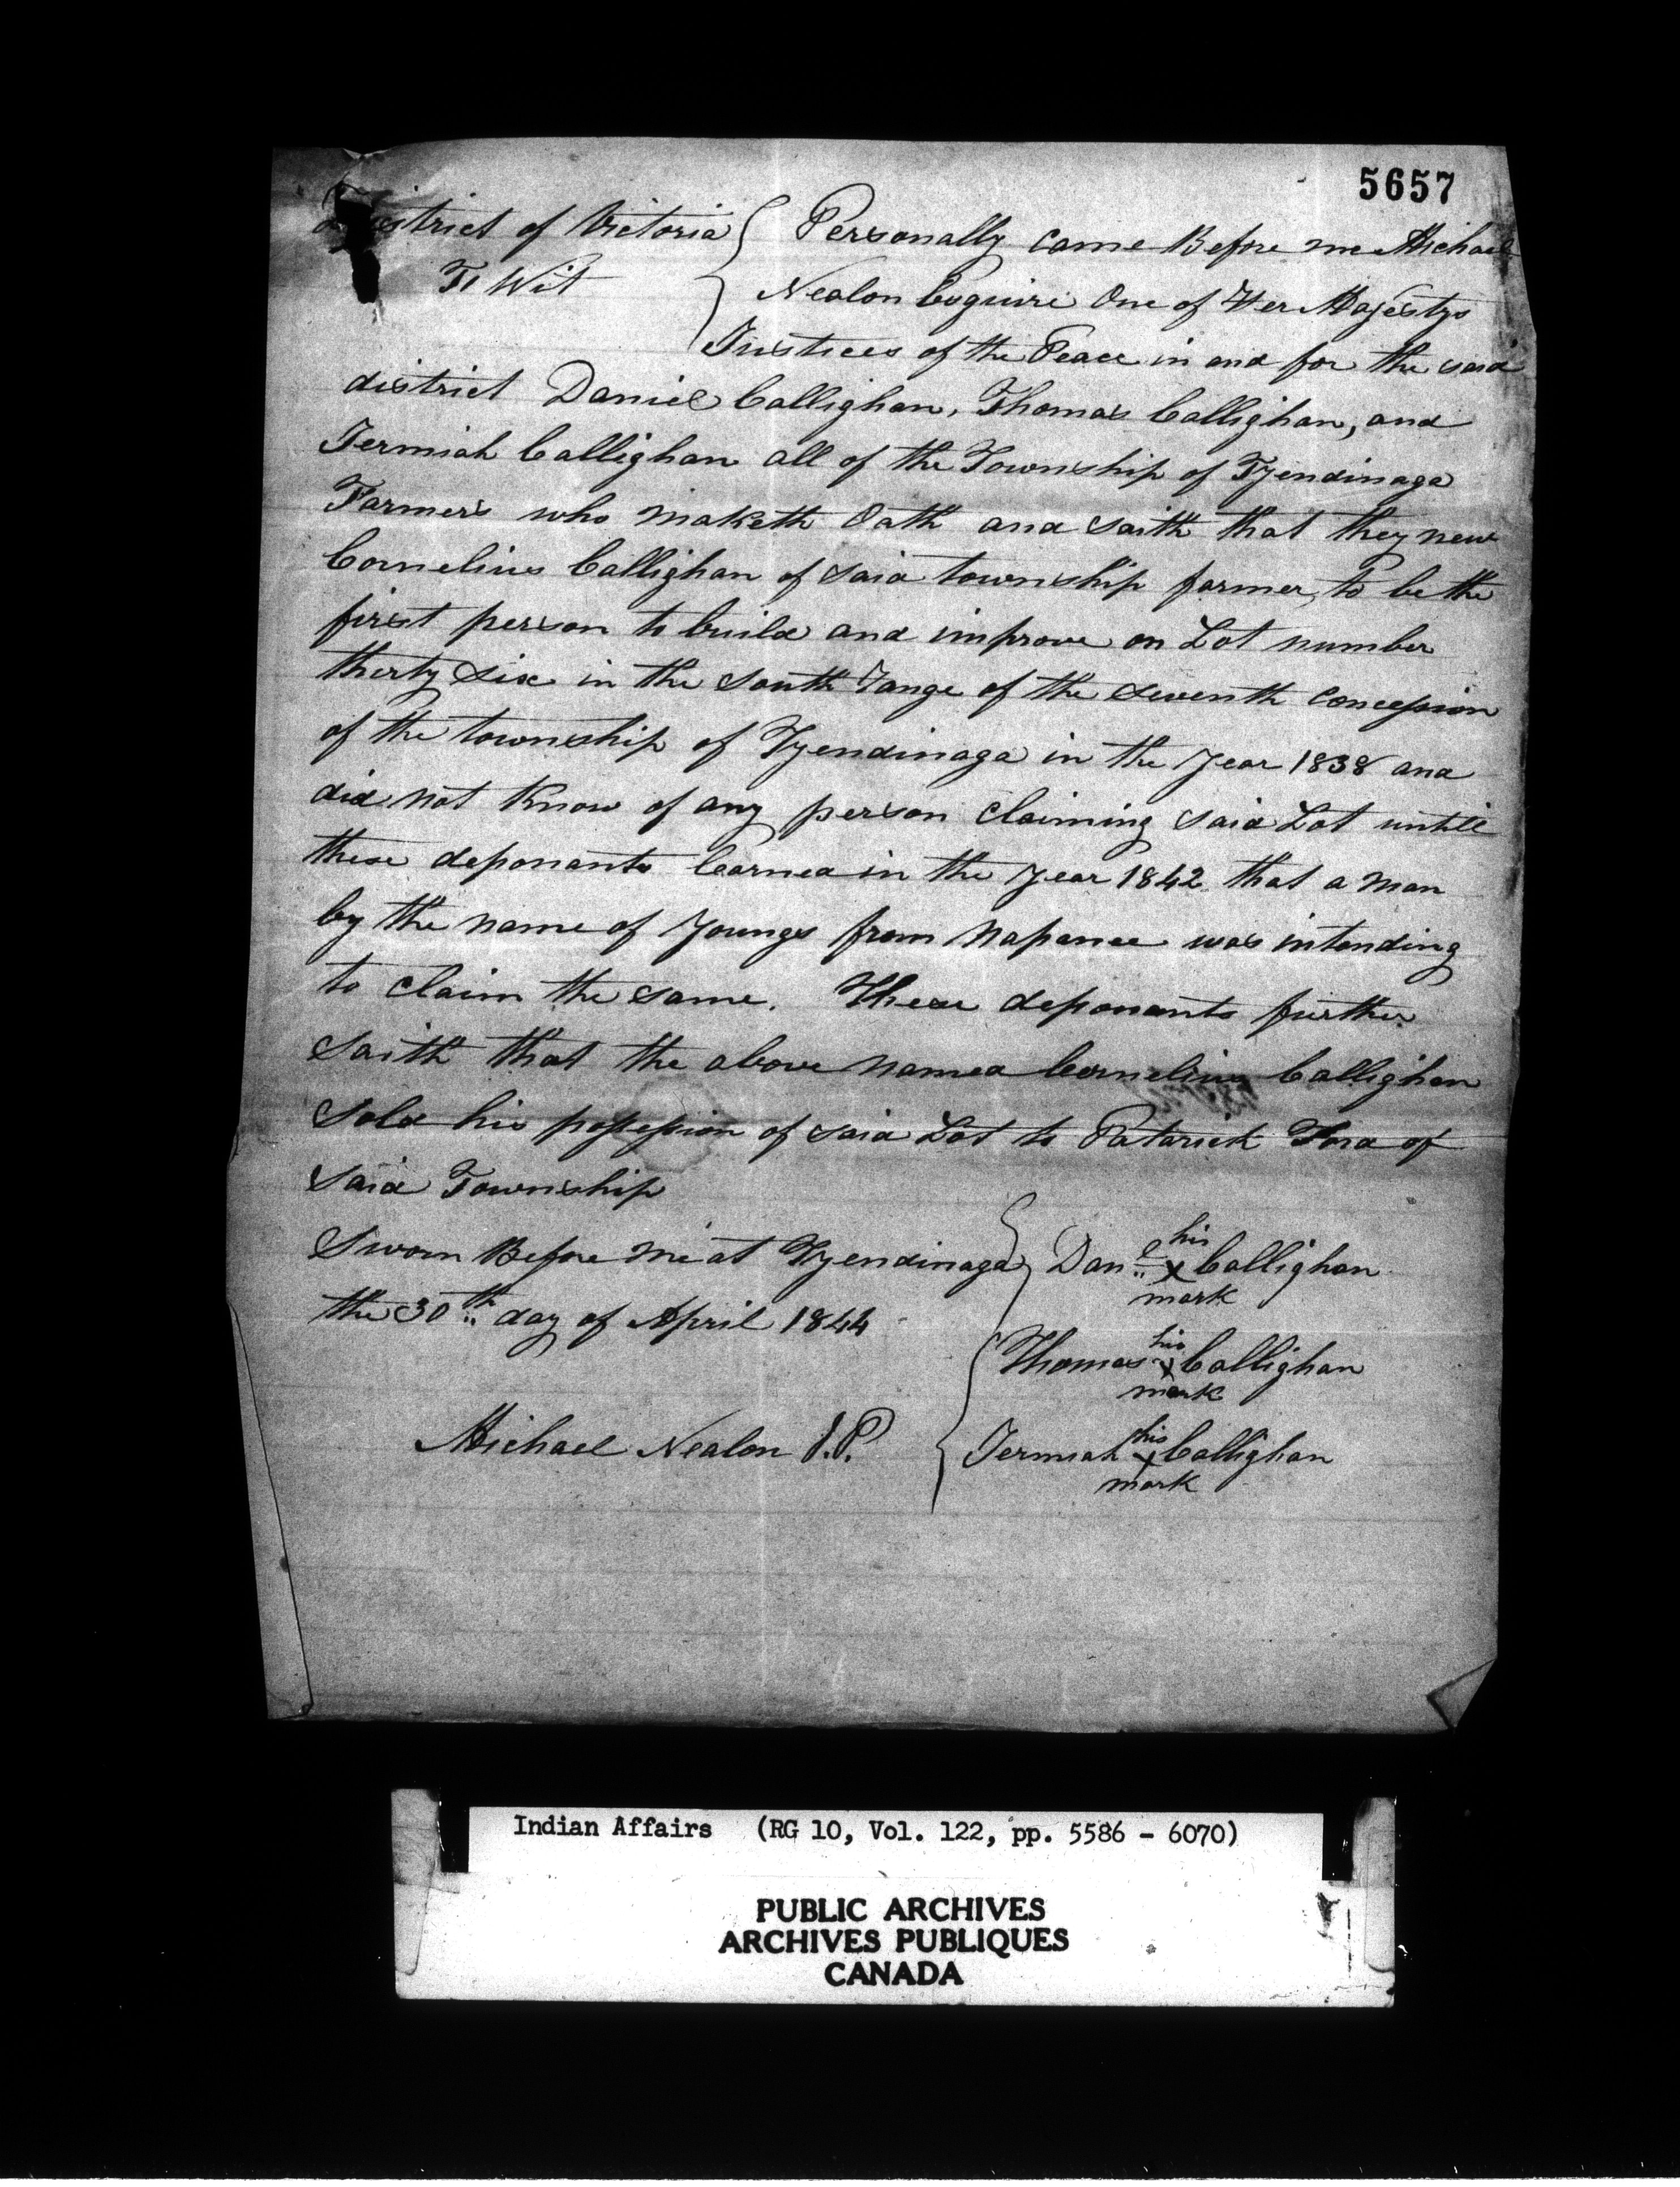 5657
district of Victoria { Personally came Before me Michael
To Wit } Nealon Esquire One of Her Majestys
Justices of the Peace in and for the said
district Daniel Callighan, Thomas Callighan, and
Jermiah Callighan all of the Township of Tyendinaga
Farmers who maketh Oath and saith that they new
Cornelius Callighan of said township farmer, to be the
first person to build and improve on Lot number
therty six in the south range of the seventh concession
of the township of Tyendinaga in the year 1838 and
did not know of any person claiming said Lot untill
these deponants learned in the year 1842 that a man
by the name of Youngs from Napanee was intending
to claim the same. These deponants further
saith that the above named Cornelius Callighan
sold his possession of said Lot to Patarick Ford of
said Township
Sworn Before me at Tyendinaga } Danl his x mark Callighan
the 30th day of April 1844
Thomas his x mark Callighan
Michael Nealon J.P. { Jermiah his x mark Callighan
Indian Affairs (RG 10, Vol. 122, pp. 5586 - 6070)
PUBLIC ARCHIVES
ARCHIVES PUBLIQUES
CANADA